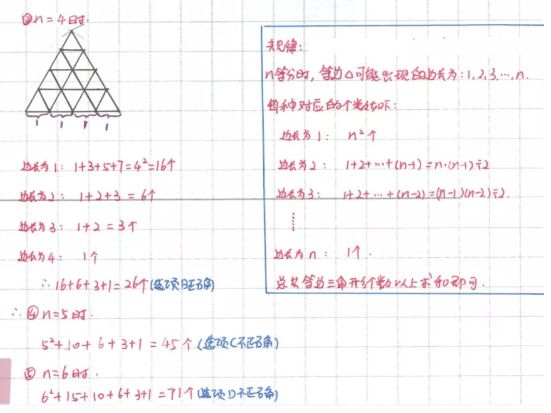 ③n=4时.
1 1 1 1
边长为1: 1+3+5+7=4²=16个
边长为2: 1+2+3 = 6个
边长为3: 1+2 = 3个
边长为4: 1个
∴ 16+6+3+1=26个(选项B正确)
∴ ④ n=5时.
5²+10+6+3+1 = 45个 (选项C不正确)
⑤ n=6时.
6²+15+10+6+3+1=71个 (选项D不正确)
找规律:
n等分时, 等边△可能出现的边长为: 1,2,3,…,n.
每种对应的个数如下:
边长为1: n²个
边长为2: 1+2+…+(n-1)=n·(n-1)÷2
边长为3: 1+2+…+(n-2)=(n-1)(n-2)÷2.
⋮
边长为n: 1个.
总共等边三角形个数以上求和即可.